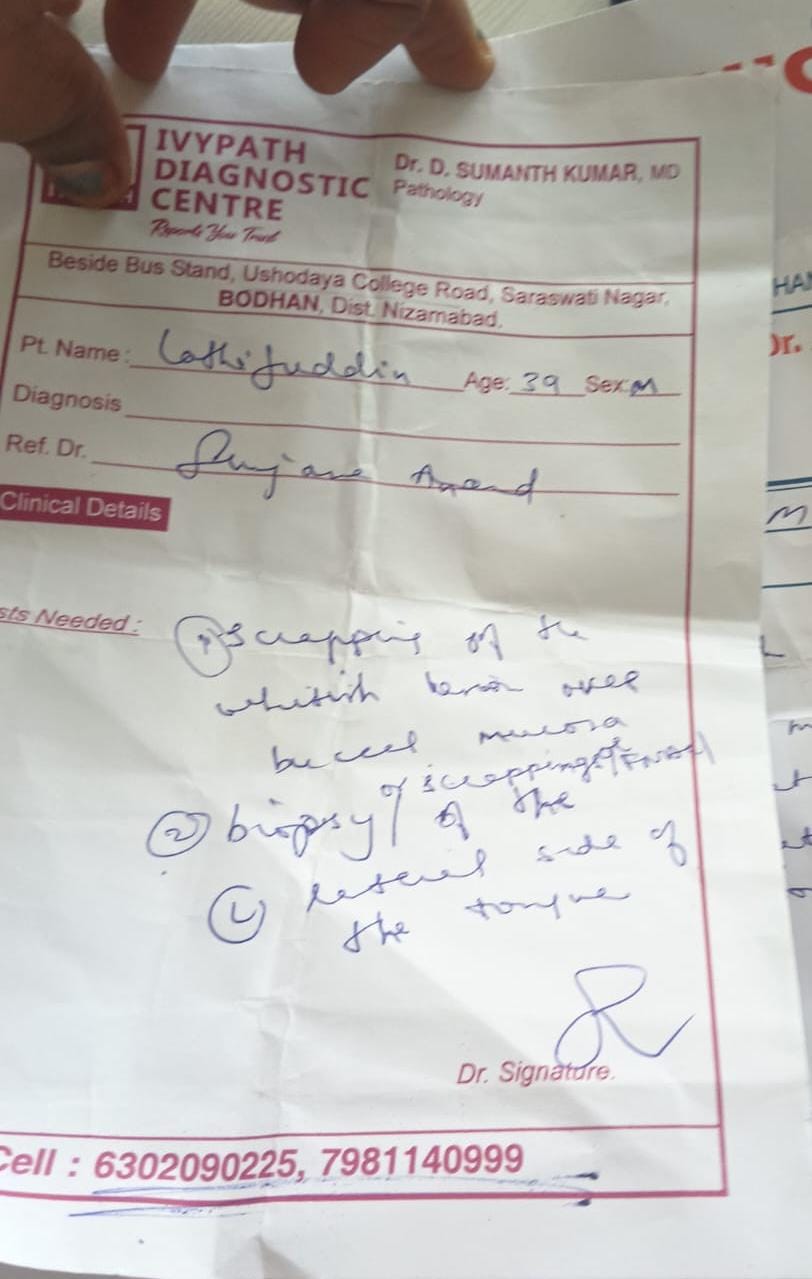 IVYPATH
DIAGNOSTIC
CENTRE
Reports You Trust
Dr. D. SUMANTH KUMAR, MD
Pathology
Beside Bus Stand, Ushodaya College Road, Saraswati Nagar,
BODHAN, Dist. Nizamabad.
Pt. Name: Lathifuddin Age: 39 Sex: M
Diagnosis
Ref. Dr. Anand
Clinical Details
sts Needed:
① scrapping of the
whitish lesion over
buccal mucosa
or scrappings
② biopsy / of the
Ⓛ lateral side of
the tongue
Dr. Signature.
Cell : 6302090225, 7981140999
HAN
Dr.
M